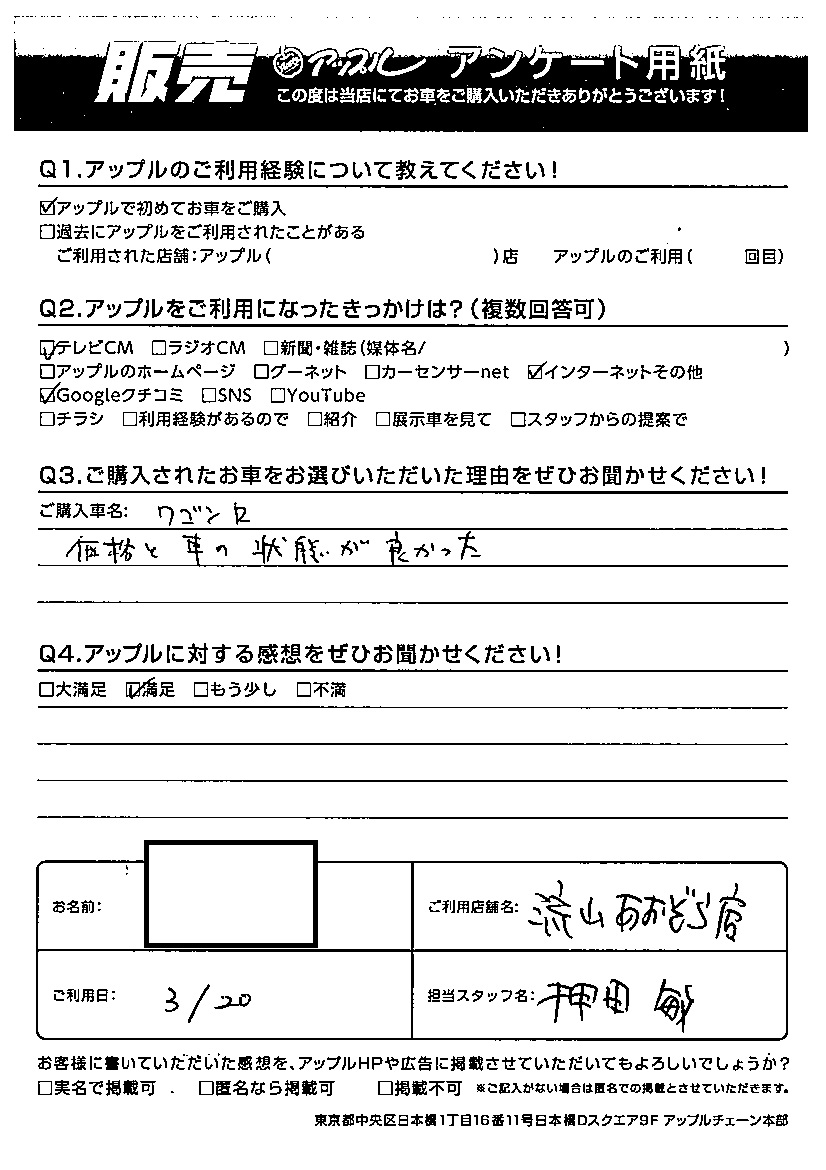 販売 アップル アンケート用紙
この度は当店にてお車をご購入いただきありがとうございます!
Q1.アップルのご利用経験について教えてください!
☑アップルで初めてお車をご購入
□過去にアップルをご利用されたことがある
ご利用された店舗:アップル( )店 アップルのご利用( 回目)
Q2.アップルをご利用になったきっかけは?(複数回答可)
☑テレビCM □ラジオCM □新聞・雑誌(媒体名/ )
□アップルのホームページ □グーネット □カーセンサーnet ☑インターネットその他
☑Googleクチコミ □SNS □YouTube
□チラシ □利用経験があるので □紹介 □展示車を見て □スタッフからの提案で
Q3.ご購入されたお車をお選びいただいた理由をぜひお聞かせください!
ご購入車名: ワゴンR
価格と車の状態が良かった
Q4.アップルに対する感想をぜひお聞かせください!
□大満足 ☑満足 □もう少し □不満
お名前:
ご利用店舗名: 流山あおぞら店
ご利用日: 3/20
担当スタッフ名: 押田 敏
お客様に書いていただいた感想を、アップルHPや広告に掲載させていただいてもよろしいでしょうか?
□実名で掲載可 □匿名なら掲載可 □掲載不可 ※ご記入がない場合は匿名での掲載とさせていただきます。
東京都中央区日本橋1丁目16番11号日本橋Dスクエア9F アップルチェーン本部